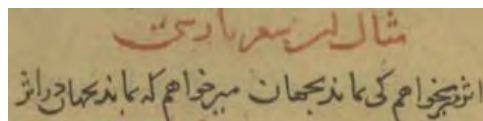 مثال این شعر پارسی
اثر میخواهم کی بماند بجهان میخواهم که بماند بجهان در اثر